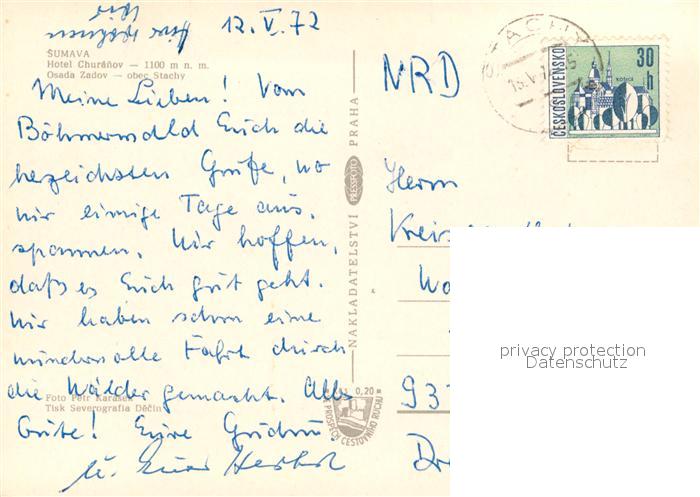 Hier wohnen wir
12. V. 72
ŠUMAVA
Hotel Churáňov — 1100 m n. m.
Osada Zadov — obec Stachy
Meine Lieben! Vom
Böhmerwald Euch die
herzlichsten Grüße, wo
wir einige Tage aus-
spannen. Wir hoffen,
daß es Euch gut geht.
Wir haben schon eine
wundervolle Fahrt durch
die Wälder gemacht. Alles
Gute! Eure
u. Euer Herbert
Foto Petr Karásek
Tisk Severografia Děčín
NAKLADATELSTVÍ PRESSFOTO PRAHA
0,20
PROSPĚCH CESTOVNÍHO RUCHU
NRD
STACHY
ČESKOSLOVENSKO
30 h
KOŠICE
Herrn
93
privacy protection
Datenschutz